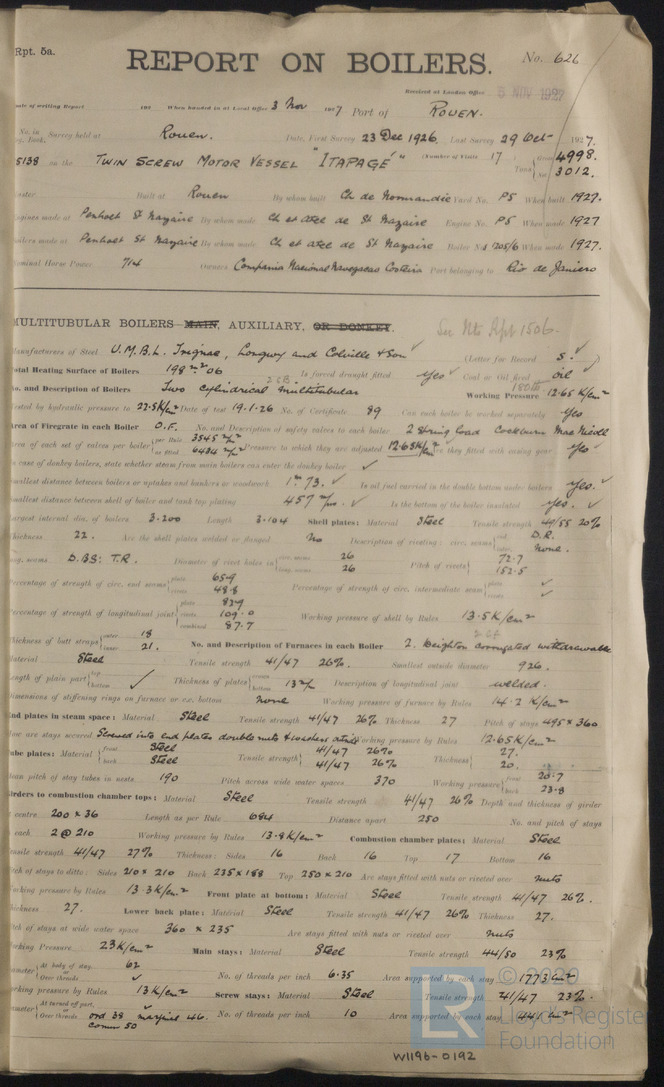 Rpt. 5a.
REPORT ON BOILERS.
No. 626
Received at London Office 5 NOV 1927
Date of writing Report 192 When handed in at Local Office 3 Nov 1927 Port of ROUEN.
No. in Survey held at Rouen. Date, First Survey 23 Dec 1926. Last Survey 29 Oct 1927.
5138 on the TWIN SCREW MOTOR VESSEL "ITAPAGÉ" (Number of Visits 17) Tons Gross 4998. Net 3012.
Built at Rouen By whom built Ch de Normandie Yard No. P5 When built 1927.
Engines made at Penhoet St Nazaire By whom made Ch et atel de St Nazaire Engine No. P5 When made 1927
Boilers made at Penhoet St Nazaire By whom made Ch et atel de St Nazaire Boiler No. 1205/6 When made 1927.
Nominal Horse Power 714 Owners Compania Nacional Navegacao Costeira Port belonging to Rio de Janiero
MULTITUBULAR BOILERS MAIN, AUXILIARY, OR DONKEY.
See Ntc Rpt 1506.
Manufacturers of Steel U.M.B.L. Longwy and Colville & Son (Letter for Record S.)
Total Heating Surface of Boilers 198 m² 06 Is forced draught fitted yes Coal or Oil fired oil
No. and Description of Boilers Two cylindrical multitubular Working Pressure 12.65 K/cm²
Tested by hydraulic pressure to 22.5K/cm² Date of test 19-1-26 No. of Certificate 89 Can each boiler be worked separately Yes
Area of Firegrate in each Boiler O.F. No. and Description of safety valves to each boiler 2 Spring load Cockburn
Area of each set of valves per boiler per Rule 3545 m/m² as fitted 6434 m/m² Pressure to which they are adjusted 12.65K/cm² Are they fitted with easing gear Yes
In case of donkey boilers, state whether steam from main boilers can enter the donkey boiler ✓
Smallest distance between boilers or uptakes and bunkers or woodwork 1m 73. Is oil fuel carried in the double bottom under boilers Yes.
Smallest distance between shell of boiler and tank top plating 457 m/m. Is the bottom of the boiler insulated yes.
Largest internal dia. of boilers 3.200 Length 3.104 Shell plates: Material Steel Tensile strength 49/55 20%
Thickness 22. Are the shell plates welded or flanged No Description of riveting: circ. seams end D.R. inter. none.
long. seams D.BS: T.R. Diameter of rivet holes in circ. seams 26 long. seams 26 Pitch of rivets 72.7 152.5
Percentage of strength of circ. end seams plate 65.9 rivets 48.8 Percentage of strength of circ. intermediate seam plate ✓ rivets ✓
Percentage of strength of longitudinal joint plate 82.9 rivets 109.0 combined 87.7 Working pressure of shell by Rules 13.5K/cm²
Thickness of butt straps outer 18 inner 21. No. and Description of Furnaces in each Boiler 2. Deighton corrugated withdrawable
Material Steel Tensile strength 41/47 26%. Smallest outside diameter 926.
Length of plain part top bottom ✓ Thickness of plates crown bottom 13 m/m Description of longitudinal joint welded.
Dimensions of stiffening rings on furnace or c.c. bottom none Working pressure of furnace by Rules 14.2 K/cm²
End plates in steam space: Material Steel Tensile strength 41/47 26% Thickness 27 Pitch of stays 495 x 360
How are stays secured Screwed into end plates double nuts & washers Working pressure by Rules 12.65K/cm²
Tube plates: Material front Steel back Steel Tensile strength 41/47 26% 41/47 26% Thickness 27. 20.
Mean pitch of stay tubes in nests 190 Pitch across wide water spaces 370 Working pressure front 20.7 back 23.8
Girders to combustion chamber tops: Material Steel Tensile strength 41/47 26% Depth and thickness of girder
at centre 200 x 36 Length as per Rule 684 Distance apart 250 No. and pitch of stays
in each 2 @ 210 Working pressure by Rules 13.8K/cm² Combustion chamber plates: Material Steel
Tensile strength 41/47 27% Thickness: Sides 16 Back 16 Top 17 Bottom 16
Pitch of stays to ditto: Sides 210 x 210 Back 235 x 188 Top 250 x 210 Are stays fitted with nuts or riveted over nuts
Working pressure by Rules 13.3K/cm² Front plate at bottom: Material Steel Tensile strength 41/47 26%.
Thickness 27. Lower back plate: Material Steel Tensile strength 41/47 26% Thickness 27.
Pitch of stays at wide water space 360 x 235 Are stays fitted with nuts or riveted over nuts
Working Pressure 23K/cm² Main stays: Material Steel Tensile strength 44/50 23%
Diameter At body of stay, or Over threads 62 No. of threads per inch 6.35 Area supported by each stay 1773 cm²
Working pressure by Rules 13K/cm² Screw stays: Material Steel Tensile strength 41/47 23%.
Diameter At turned off part, or Over threads ord 38 marginal 46. comm 50 No. of threads per inch 10 Area supported by each stay 441 cm²
© 2020
LR Lloyd's Register Foundation
W1196-0192